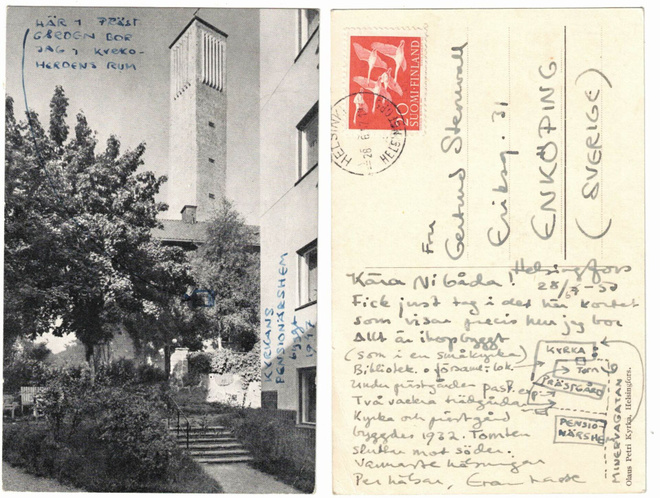 HÄR I PRÄST
GÅRDEN BOR
JAG, KYRKO-
HERDENS RUM
KYRKANS
PENSIONÄRSHEM
byggt
SUOMI-FINLAND
20
HELSINKI
HELSINGFORS
Fru
Gertrud Stenwall
Eriksg. 31
ENKÖPING
(SVERIGE)
Helsingfors
Kära Ni båda!
Fick just tag i det här kortet
som visar precis hur jag bor
Allt är ihopbyggt
(som i en småkyrka)
Bibliotek o församl. lok.
Under prästgården
Två vackra trädgårdar
Kyrka och prästgård
byggdes 1932. Tomten
sluttar mot söder.
Varmaste hälsningar
Per hälsar,
KYRKA
Torn
PRÄSTGÅRD
PENSIO-
NÄRSHE
MINERVAGATAN
Olaus Petri Kyrka, Helsingfors.